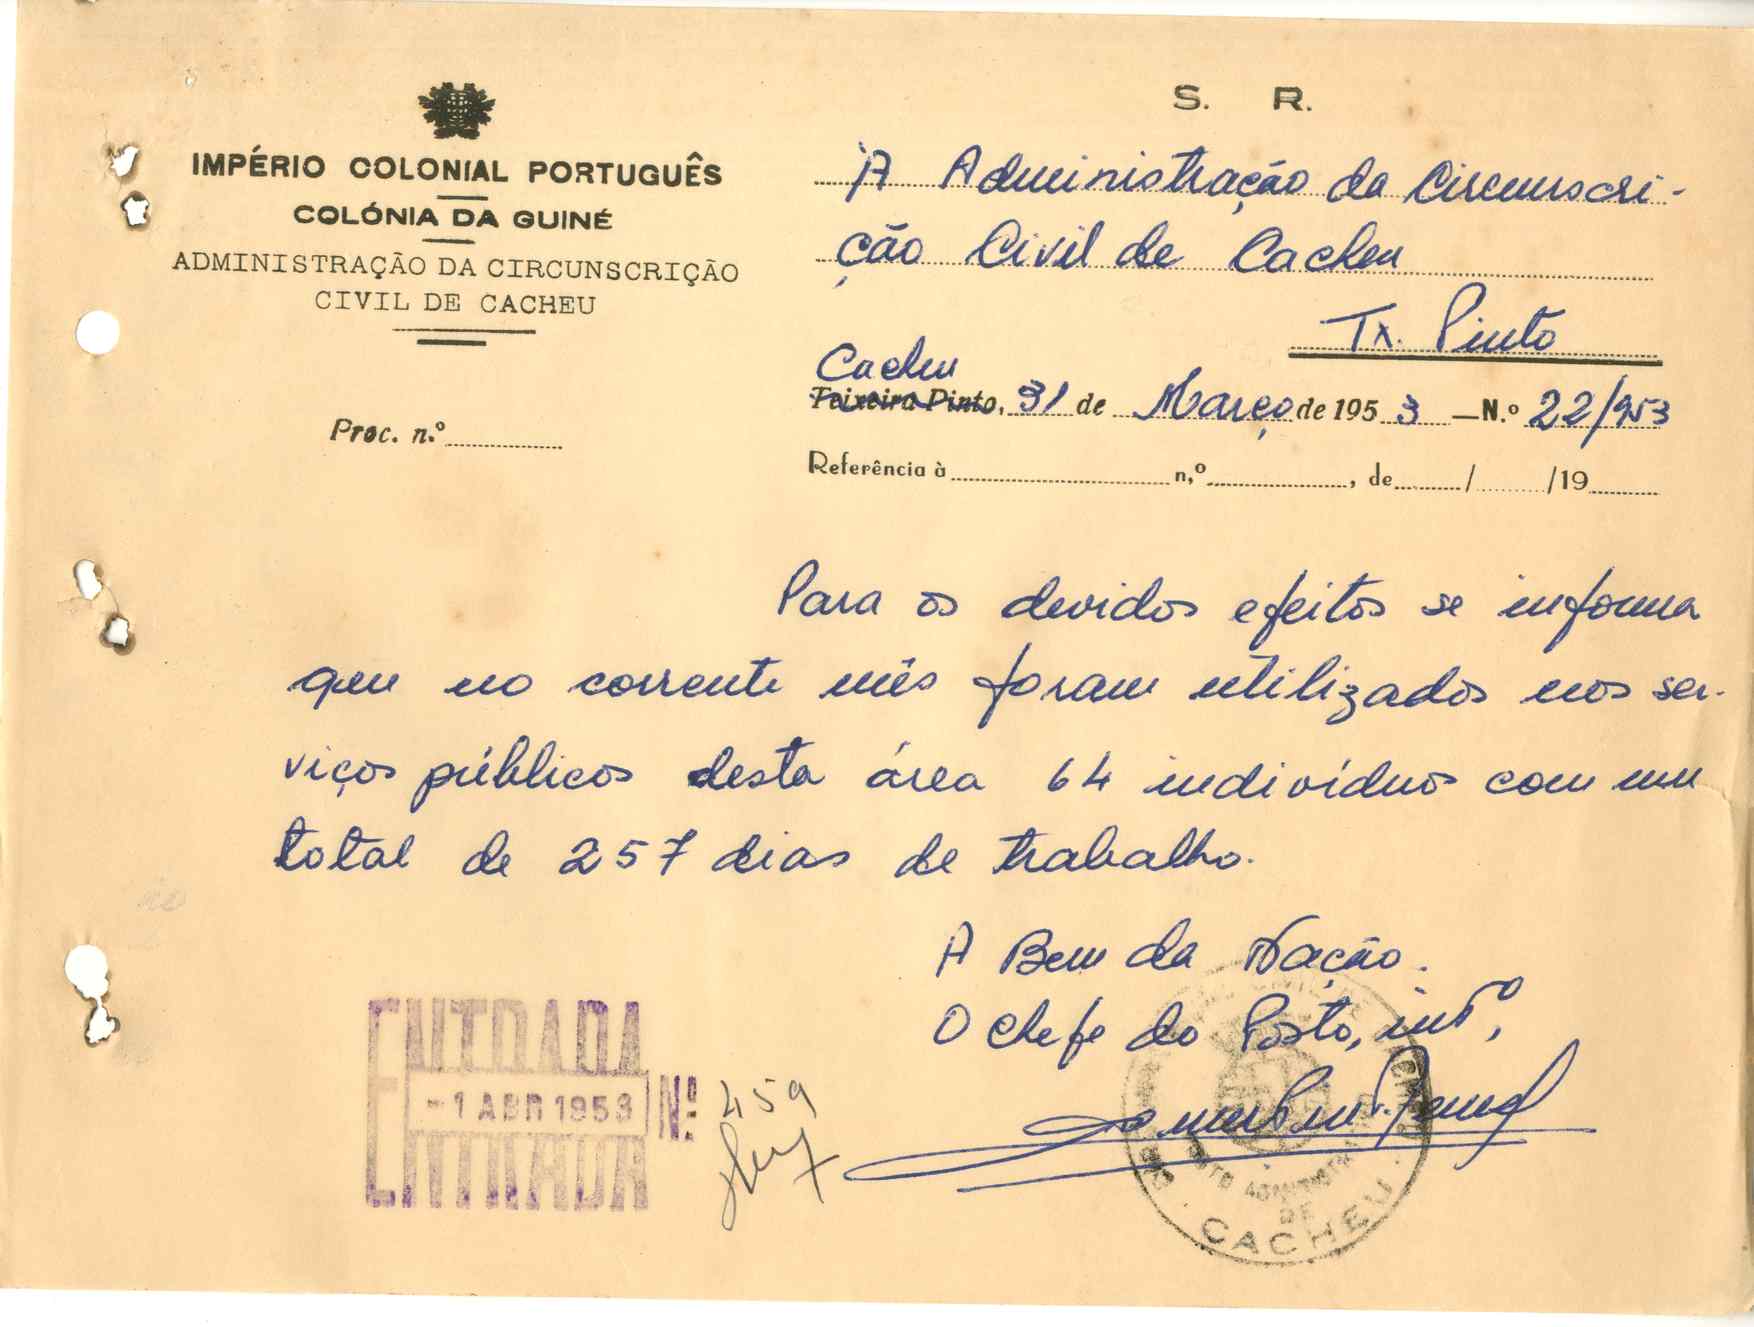 S. R.
IMPÉRIO COLONIAL PORTUGUÊS
COLÓNIA DA GUINÉ
ADMINISTRAÇÃO DA CIRCUNSCRIÇÃO
CIVIL DE CACHEU
À Administração da Circunscri-
ção Civil de Cacheu
Tx. Pinto
Cacheu
Teixeira Pinto, 31 de Março de 1953 — N.º 22/953
Proc. n.º
Referência à n.º , de / /19
Para os devidos efeitos se informa
que no corrente mês foram utilizados nos ser-
viços públicos desta área 64 indivíduos com um
total de 257 dias de trabalho.
A Bem da Nação.
O Chefe do Posto, intº,
ENTRADA
-1 ABR 1953 Nº 459
ENTRADA
POSTO ADMINISTRATIVO
DE
CACHEU